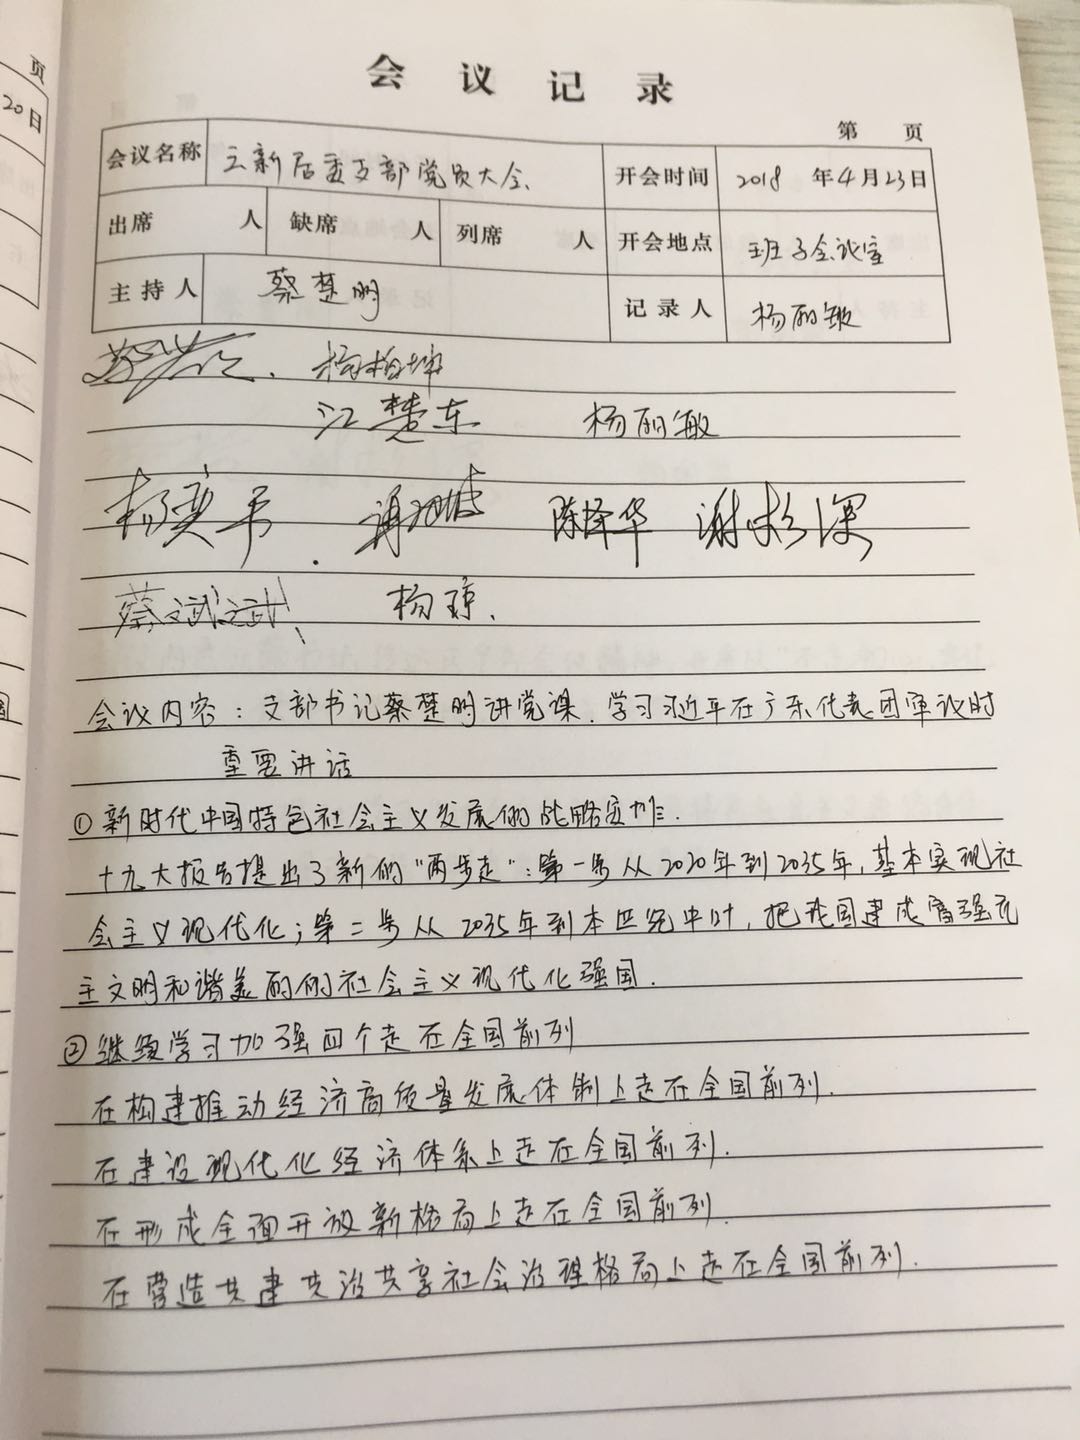 页
20日
会议记录
第 页
会议名称 立新居委支部党员大会 开会时间 2018年4月23日
出席 人 缺席 人 列席 人 开会地点 班子会议室
主持人 蔡楚明 记录人 杨丽敏
杨柏坤
江楚东 杨丽敏
杨奕 陈泽华 谢彬深
蔡斌斌 杨琼.
会议内容：支部书记蔡楚明讲党课.学习习近平在广东代表团审议时
重要讲话
①新时代中国特色社会主义发展的战略安排.
十九大报告提出了新的"两步走"：第一步从2020年到2035年,基本实现社
会主义现代化;第二步从2035年到本世纪中叶,把我国建成富强民
主文明和谐美丽的社会主义现代化强国.
②继续学习加强四个走在全国前列
在构建推动经济高质量发展体制上走在全国前列.
在建设现代化经济体系上走在全国前列.
在形成全面开放新格局上走在全国前列.
在营造共建共治共享社会治理格局上走在全国前列.